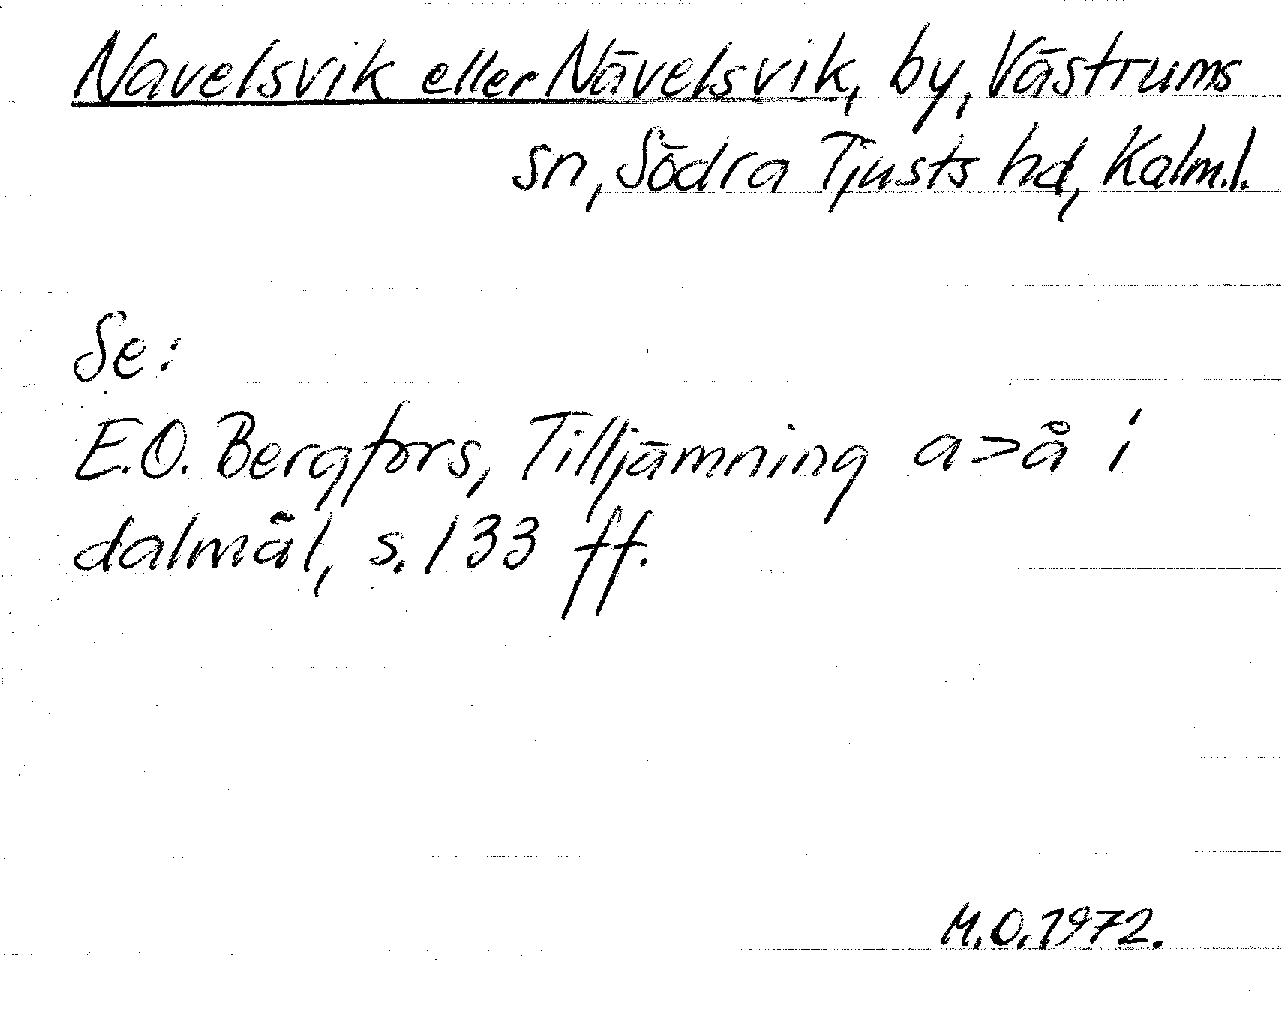 Navelsvik eller Nävelsvik, by, Västrums
sn, Södra Tjusts hd, Kalm.l.
Se:
E.O. Bergfors, Tilljämning a>å i
dalmål, s. 133 ff.
M.O. 1972.